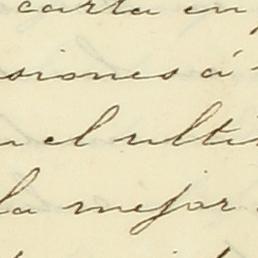 carta en
siones á
el ulti
la mejor